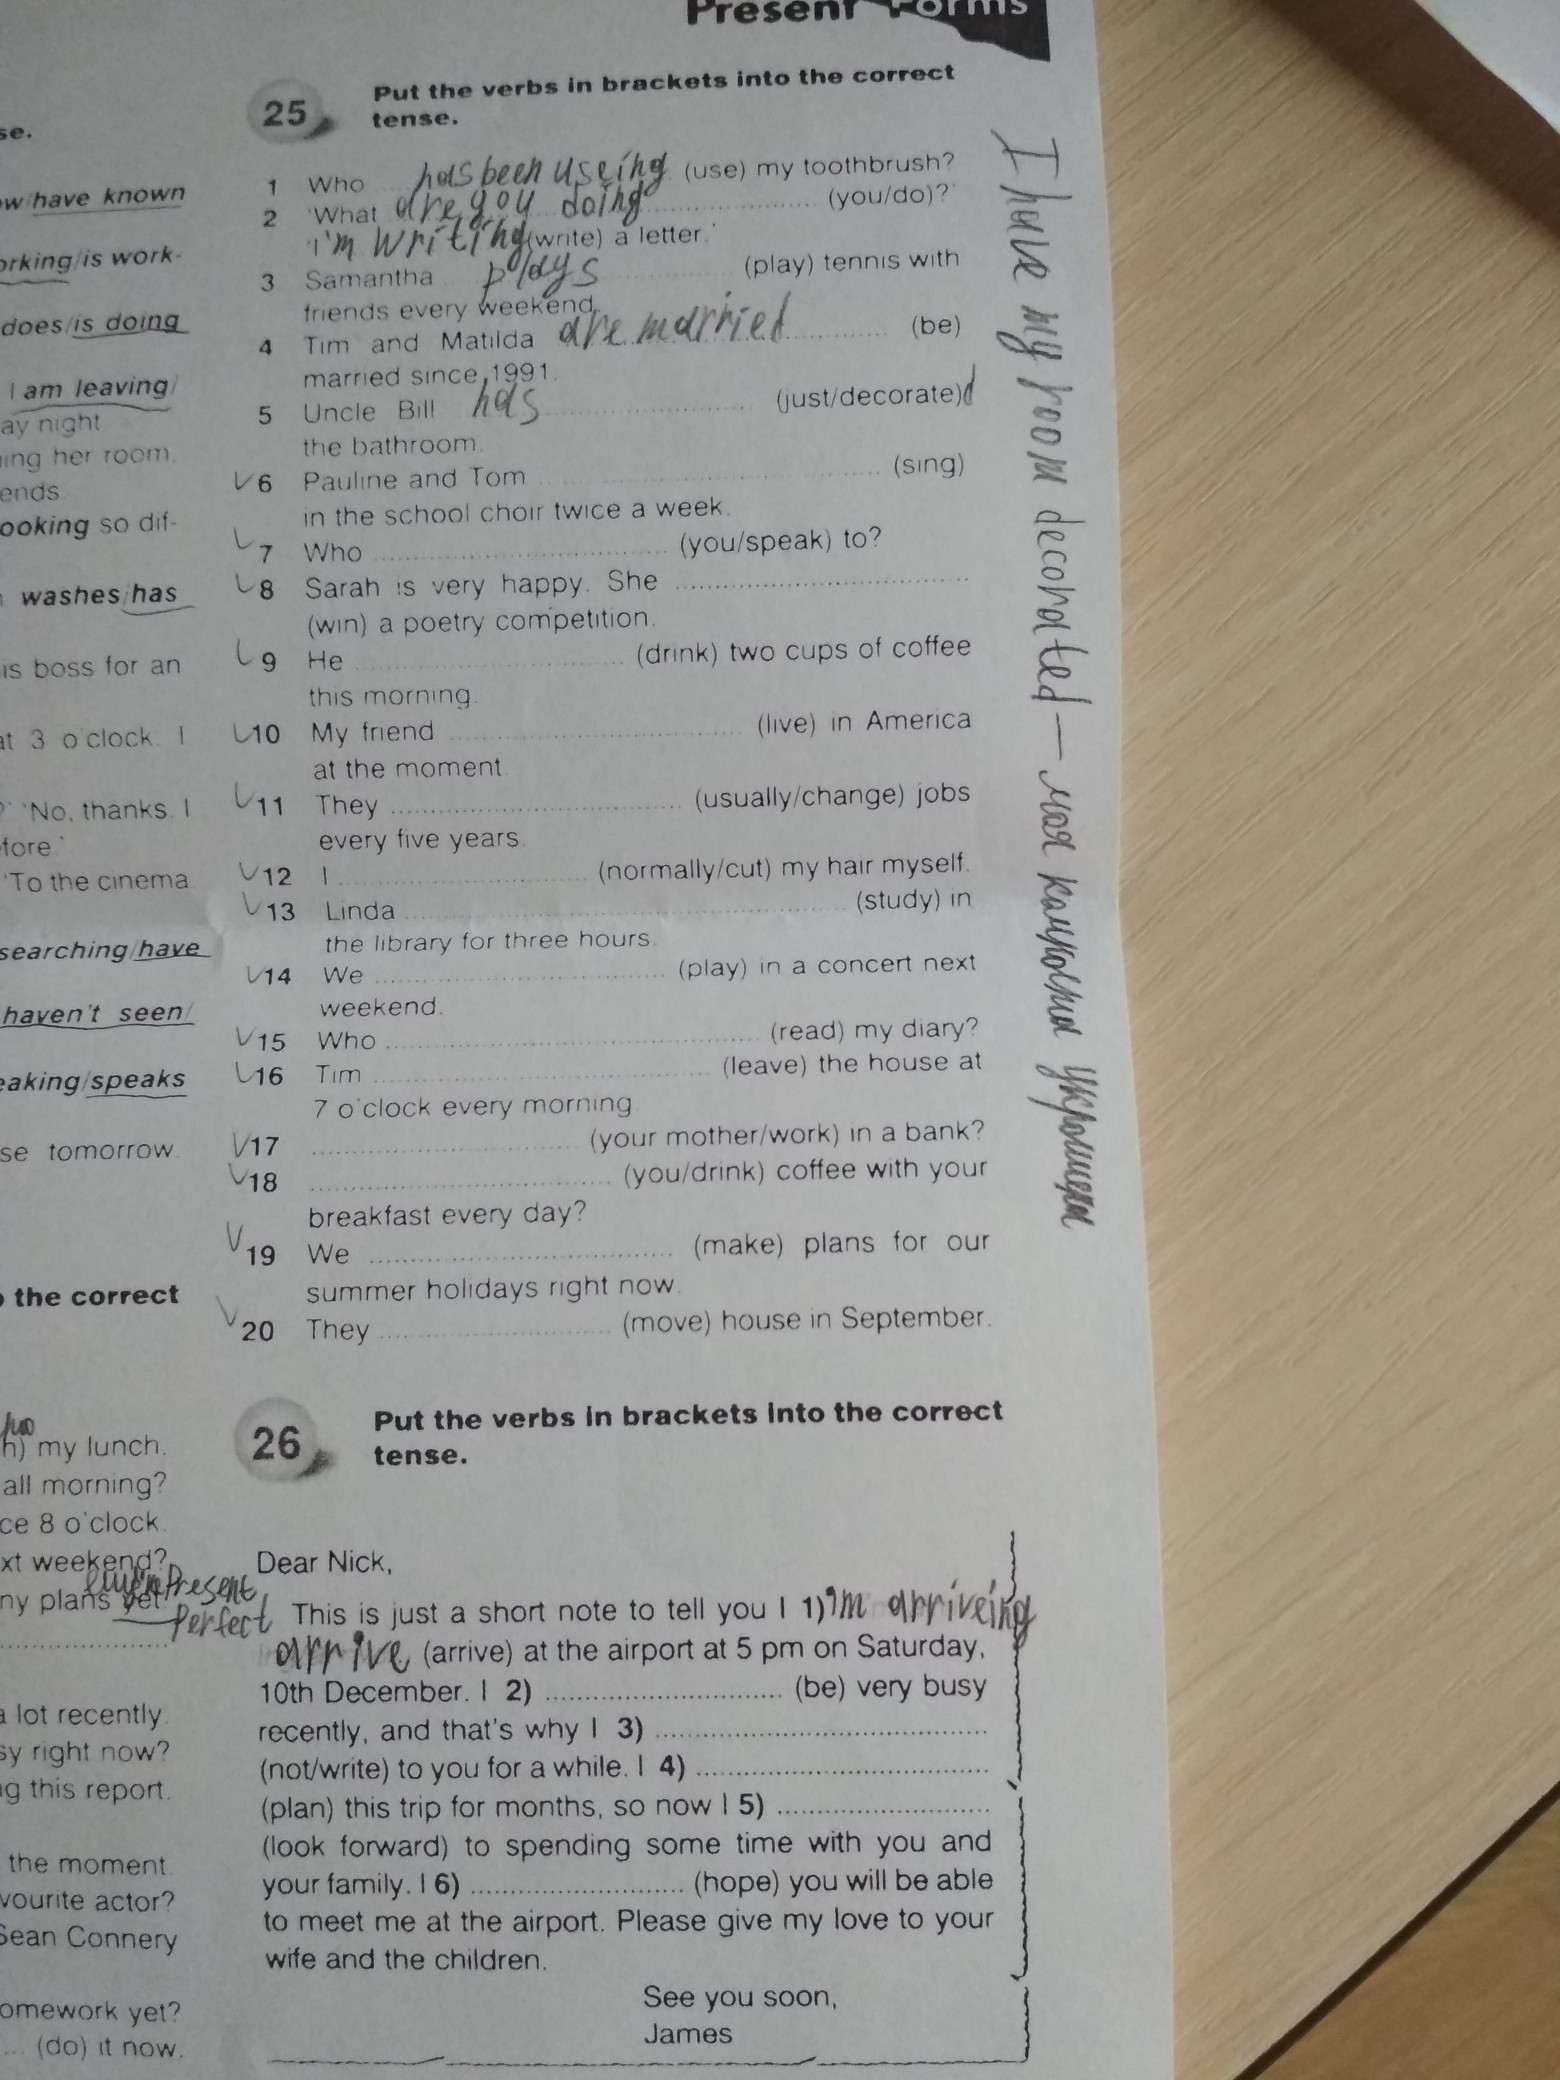 Present Forms
se.
ow/have known
orking/is work-
does/is doing
I am leaving/
ay night
ing her room.
ends.
ooking so dif-
washes/has
is boss for an
at 3 o'clock. I
?' 'No, thanks. I
fore.'
'To the cinema.
searching/have
haven't seen/
eaking/speaks
se tomorrow.
o the correct
h) my lunch.
all morning?
ce 8 o'clock.
xt weekend?
ny plans yet.
Present
Perfect
a lot recently.
sy right now?
ng this report.
the moment.
vourite actor?
Sean Connery
omework yet?
... (do) it now.
25 Put the verbs in brackets into the correct
tense.
1 Who has been useing (use) my toothbrush?
2 'What are you doing (you/do)?'
'I'm writing (write) a letter.'
3 Samantha plays (play) tennis with
friends every weekend.
4 Tim and Matilda are married (be)
married since 1991.
5 Uncle Bill has (just/decorate)d
the bathroom.
6 Pauline and Tom (sing)
in the school choir twice a week.
7 Who (you/speak) to?
8 Sarah is very happy. She
(win) a poetry competition.
9 He (drink) two cups of coffee
this morning.
10 My friend (live) in America
at the moment.
11 They (usually/change) jobs
every five years.
12 I (normally/cut) my hair myself.
13 Linda (study) in
the library for three hours.
14 We (play) in a concert next
weekend.
15 Who (read) my diary?
16 Tim (leave) the house at
7 o'clock every morning.
17 (your mother/work) in a bank?
18 (you/drink) coffee with your
breakfast every day?
19 We (make) plans for our
summer holidays right now.
20 They (move) house in September.
I have my room decorated — моя комната украшена
26 Put the verbs in brackets into the correct
tense.
Dear Nick,
This is just a short note to tell you I 1) 'm arriveing
arrive (arrive) at the airport at 5 pm on Saturday,
10th December. I 2) (be) very busy
recently, and that's why I 3)
(not/write) to you for a while. I 4)
(plan) this trip for months, so now I 5)
(look forward) to spending some time with you and
your family. I 6) (hope) you will be able
to meet me at the airport. Please give my love to your
wife and the children.
See you soon,
James